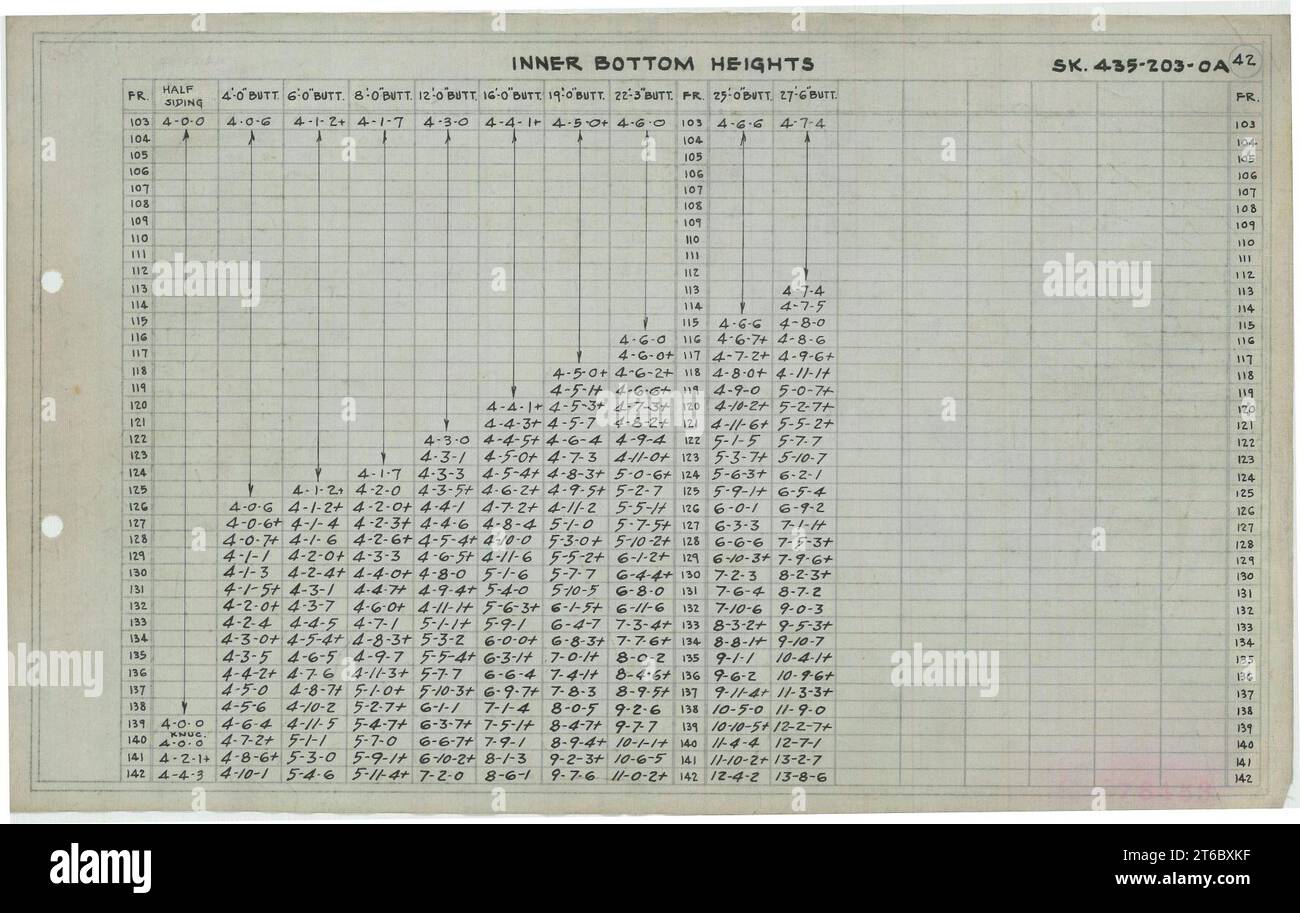 INNER BOTTOM HEIGHTS SK. 435-203-0A 42
FR. HALF SIDING 4'-0" BUTT. 6'-0" BUTT. 8'-0" BUTT. 12'-0" BUTT. 16'-0" BUTT. 19'-0" BUTT. 22'-3" BUTT. FR. 25'-0" BUTT. 27'-6" BUTT. FR.
103 4-0-0 4-0-6 4-1-2+ 4-1-7 4-3-0 4-4-1+ 4-5-0+ 4-6-0 103 4-6-6 4-7-4 103
104 104 104
105 105 105
106 106 106
107 107 107
108 108 108
109 109 109
110 110 110
111 111 111
112 112 112
113 113 4-7-4 113
114 114 4-7-5 114
115 115 4-6-6 4-8-0 115
116 4-6-0 116 4-6-7+ 4-8-6 116
117 4-6-0+ 117 4-7-2+ 4-9-6+ 117
118 4-5-0+ 4-6-2+ 118 4-8-0+ 4-11-1+ 118
119 4-5-1+ 4-6-6+ 119 4-9-0 5-0-7+ 119
120 4-4-1+ 4-5-3+ 4-7-3+ 120 4-10-2+ 5-2-7+ 120
121 4-4-3+ 4-5-7 4-8-2+ 121 4-11-6+ 5-5-2+ 121
122 4-3-0 4-4-5+ 4-6-4 4-9-4 122 5-1-5 5-7-7 122
123 4-3-1 4-5-0+ 4-7-3 4-11-0+ 123 5-3-7+ 5-10-7 123
124 4-1-7 4-3-3 4-5-4+ 4-8-3+ 5-0-6+ 124 5-6-3+ 6-2-1 124
125 4-1-2+ 4-2-0 4-3-5+ 4-6-2+ 4-9-5+ 5-2-7 125 5-9-1+ 6-5-4 125
126 4-0-6 4-1-2+ 4-2-0+ 4-4-1 4-7-2+ 4-11-2 5-5-1+ 126 6-0-1 6-9-2 126
127 4-0-6+ 4-1-4 4-2-3+ 4-4-6 4-8-4 5-1-0 5-7-5+ 127 6-3-3 7-1-1+ 127
128 4-0-7+ 4-1-6 4-2-6+ 4-5-4+ 4-10-0 5-3-0+ 5-10-2+ 128 6-6-6 7-5-3+ 128
129 4-1-1 4-2-0+ 4-3-3 4-6-5+ 4-11-6 5-5-2+ 6-1-2+ 129 6-10-3+ 7-9-6+ 129
130 4-1-3 4-2-4+ 4-4-0+ 4-8-0 5-1-6 5-7-7 6-4-4+ 130 7-2-3 8-2-3+ 130
131 4-1-5+ 4-3-1 4-4-7+ 4-9-4+ 5-4-0 5-10-5 6-8-0 131 7-6-4 8-7-2 131
132 4-2-0+ 4-3-7 4-6-0+ 4-11-1+ 5-6-3+ 6-1-5+ 6-11-6 132 7-10-6 9-0-3 132
133 4-2-4 4-4-5 4-7-1 5-1-1+ 5-9-1 6-4-7 7-3-4+ 133 8-3-2+ 9-5-3+ 133
134 4-3-0+ 4-5-4+ 4-8-3+ 5-3-2 6-0-0+ 6-8-3+ 7-7-6+ 134 8-8-1+ 9-10-7 134
135 4-3-5 4-6-5 4-9-7 5-5-4+ 6-3-1+ 7-0-1+ 8-0-2 135 9-1-1 10-4-1+ 135
136 4-4-2+ 4-7-6 4-11-3+ 5-7-7 6-6-4 7-4-1+ 8-4-6+ 136 9-6-2 10-9-6+ 136
137 4-5-0 4-8-7+ 5-1-0+ 5-10-3+ 6-9-7+ 7-8-3 8-9-5+ 137 9-11-4+ 11-3-3+ 137
138 4-5-6 4-10-2 5-2-7+ 6-1-1 7-1-4 8-0-5 9-2-6 138 10-5-0 11-9-0 138
139 4-0-0 4-6-4 4-11-5 5-4-7+ 6-3-7+ 7-5-1+ 8-4-7+ 9-7-7 139 10-10-5+ 12-2-7+ 139
140 KNUC. 4-0-0 4-7-2+ 5-1-1 5-7-0 6-6-7+ 7-9-1 8-9-4+ 10-1-1+ 140 11-4-4 12-7-1 140
141 4-2-1+ 4-8-6+ 5-3-0 5-9-1+ 6-10-2+ 8-1-3 9-2-3+ 10-6-5 141 11-10-2+ 13-2-7 141
142 4-4-3 4-10-1 5-4-6 5-11-4+ 7-2-0 8-6-1 9-7-6 11-0-2+ 142 12-4-2 13-8-6 142
alamy
Image ID: 2T6BXKF
www.alamy.com